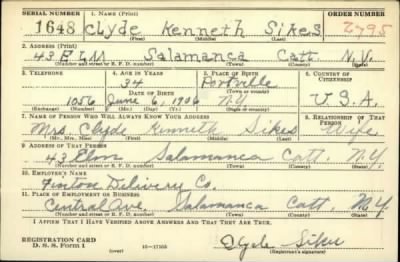 SERIAL NUMBER 1. NAME (Print) ORDER NUMBER
1648 Clyde Kenneth Sikes 2795
(First) (Middle) (Last)
2. ADDRESS (Print)
43 ELM Salamanca Catt N.Y.
(Number and street or R. F. D. number) (Town) (County) (State)
3. TELEPHONE 4. AGE IN YEARS 5. PLACE OF BIRTH 6. COUNTRY OF CITIZENSHIP
34 Portville
DATE OF BIRTH (Town or county)
1056 June 6, 1906 N.Y. U.S.A.
(Exchange) (Number) (Mo.) (Day) (Yr.) (State or country)
7. NAME OF PERSON WHO WILL ALWAYS KNOW YOUR ADDRESS 8. RELATIONSHIP OF THAT PERSON
Mrs. Clyde Kenneth Sikes Wife
(Mr., Mrs., Miss) (First) (Middle) (Last)
9. ADDRESS OF THAT PERSON
43 Elm Salamanca Catt. N.Y.
(Number and street or R. F. D. number) (Town) (County) (State)
10. EMPLOYER'S NAME
Fenton Delivery Co.
11. PLACE OF EMPLOYMENT OR BUSINESS
Central Ave. Salamanca Catt. N.Y.
(Number and street or R. F. D. number) (Town) (County) (State)
I AFFIRM THAT I HAVE VERIFIED ABOVE ANSWERS AND THAT THEY ARE TRUE.
REGISTRATION CARD
D. S. S. Form 1 (over) 16—17105 Clyde Sikes
(Registrant's signature)